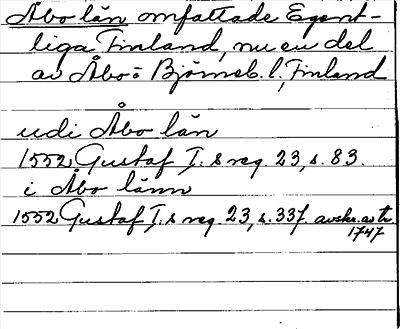 Åbo län omfattade Egent-
liga Finland, nu en del
av Åbo= Björneb. l., Finland
udi Åbo län
1552 Gustaf I:s reg. 23, s. 83.
i Åbo länn
1552 Gustaf I:s reg. 23, s. 337. avskr. av tr.
1747